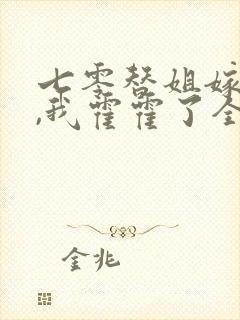 七零替姐嫁
,我霍霍了全
金兆